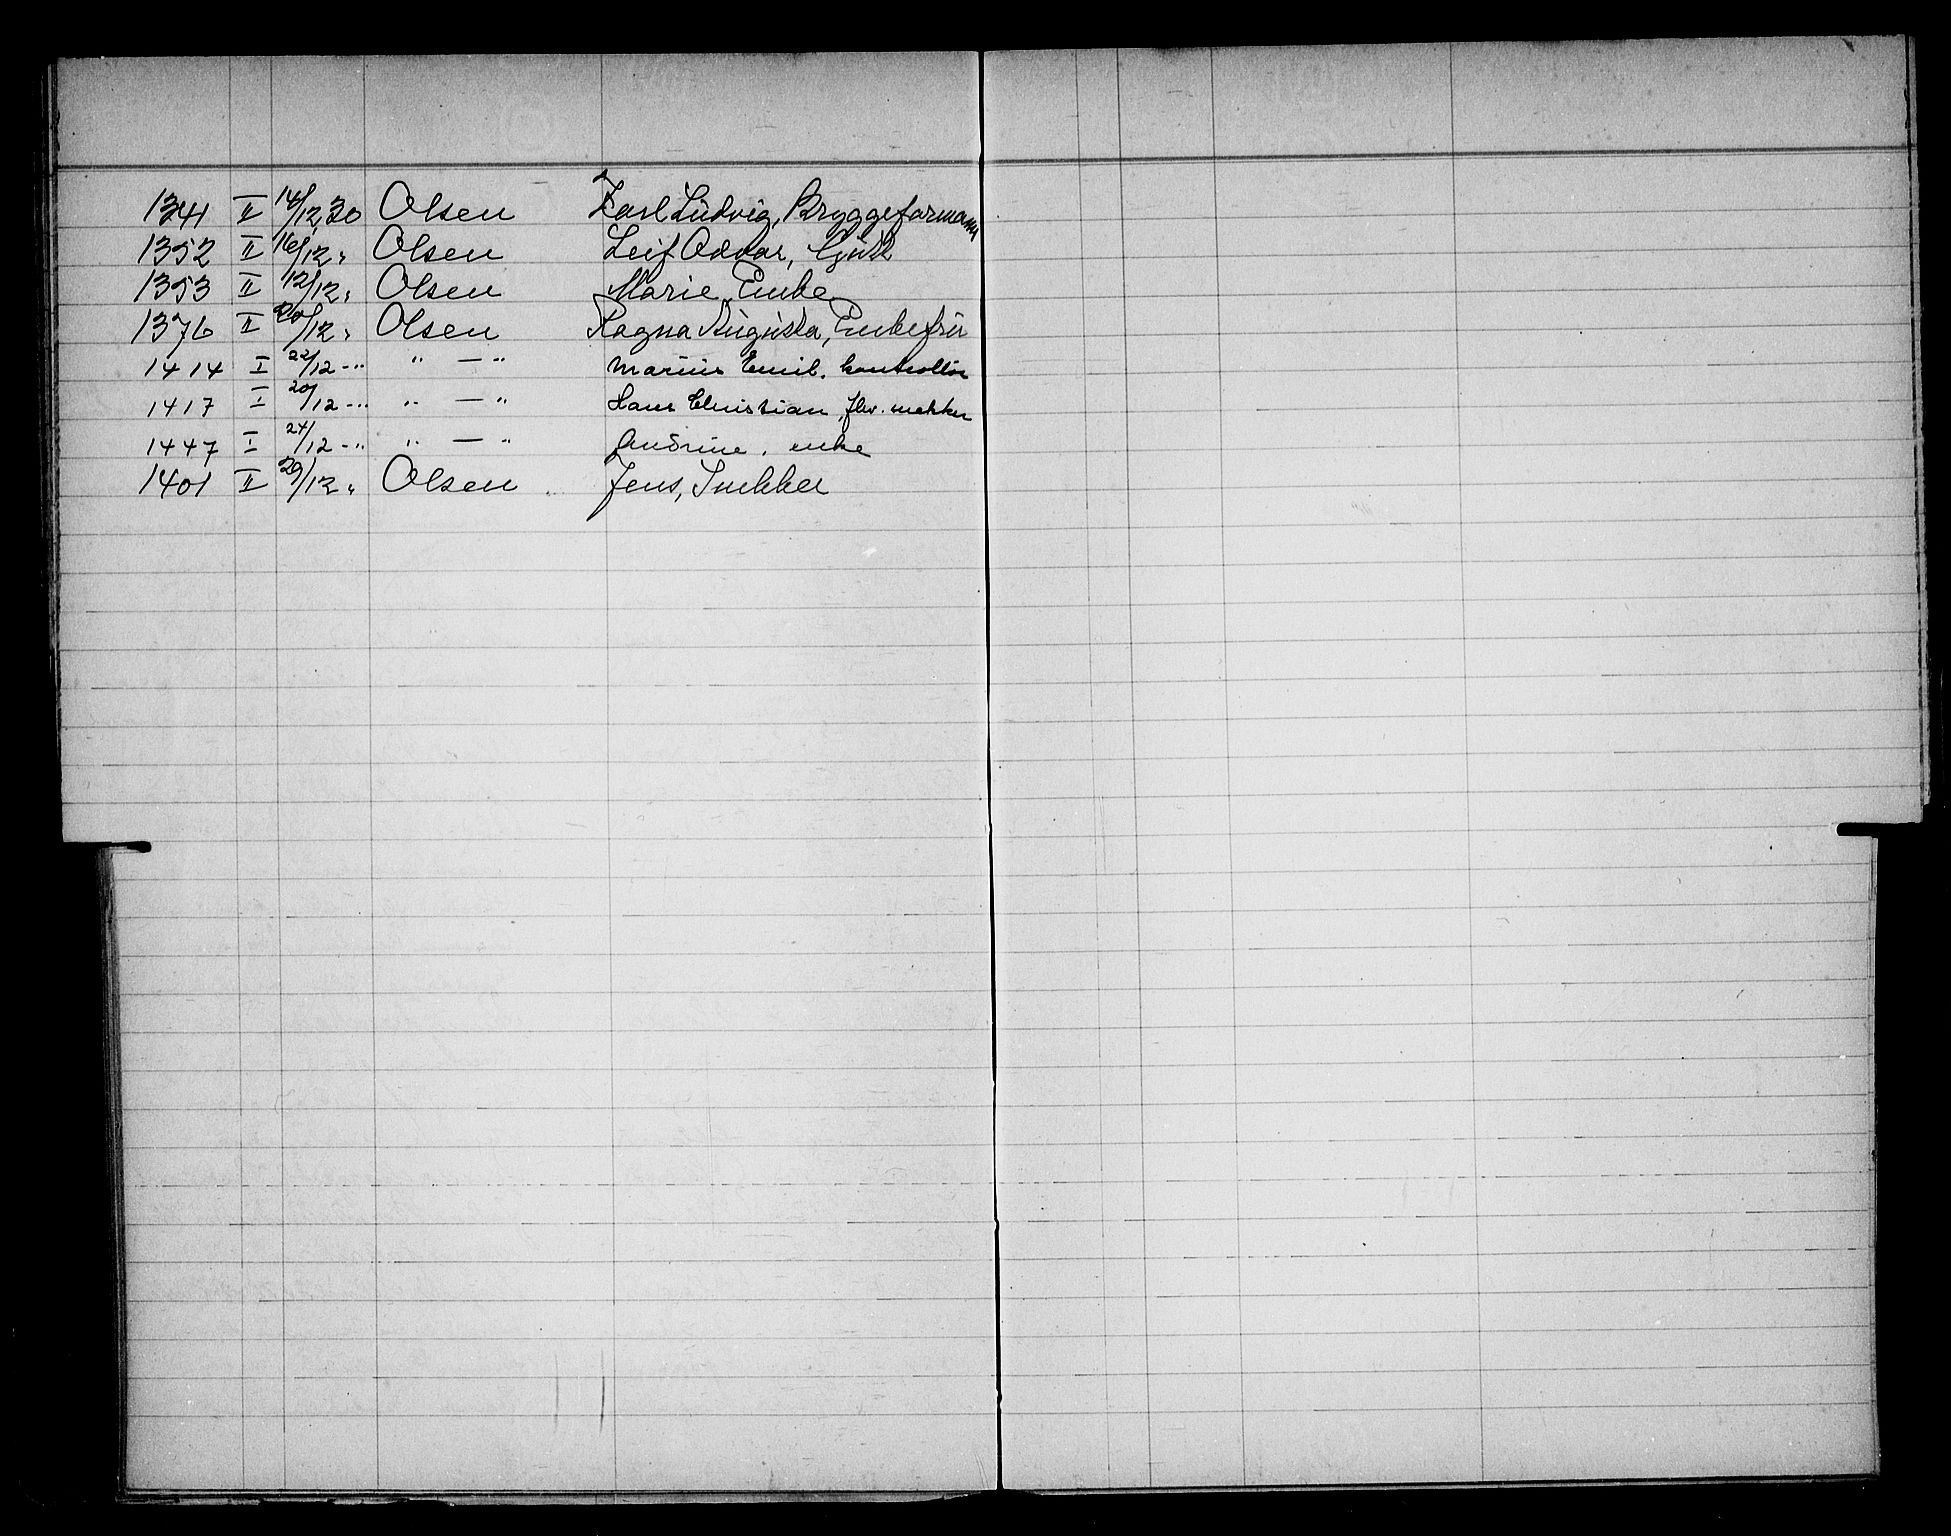 1341 II 14/12, 30 Olsen Karl Ludvig, Bryggeformann
1352 II 16/12 „ Olsen Leif Oddvar, Gutt
1353 II 12/12 „ Olsen Marie, Enke
1376 II 20/12 „ Olsen Ragna Augusta, Enkefru
1414 I 22/12 -„- „ — „ Marius Emil, kontrollør
1417 I 20/12 -„- „ — „ Hans Christian, fhv. snekker
1447 I 24/12 -„- „ — „ Andrine, enke
1401 II 29/12 „ Olsen Jens, Snekker